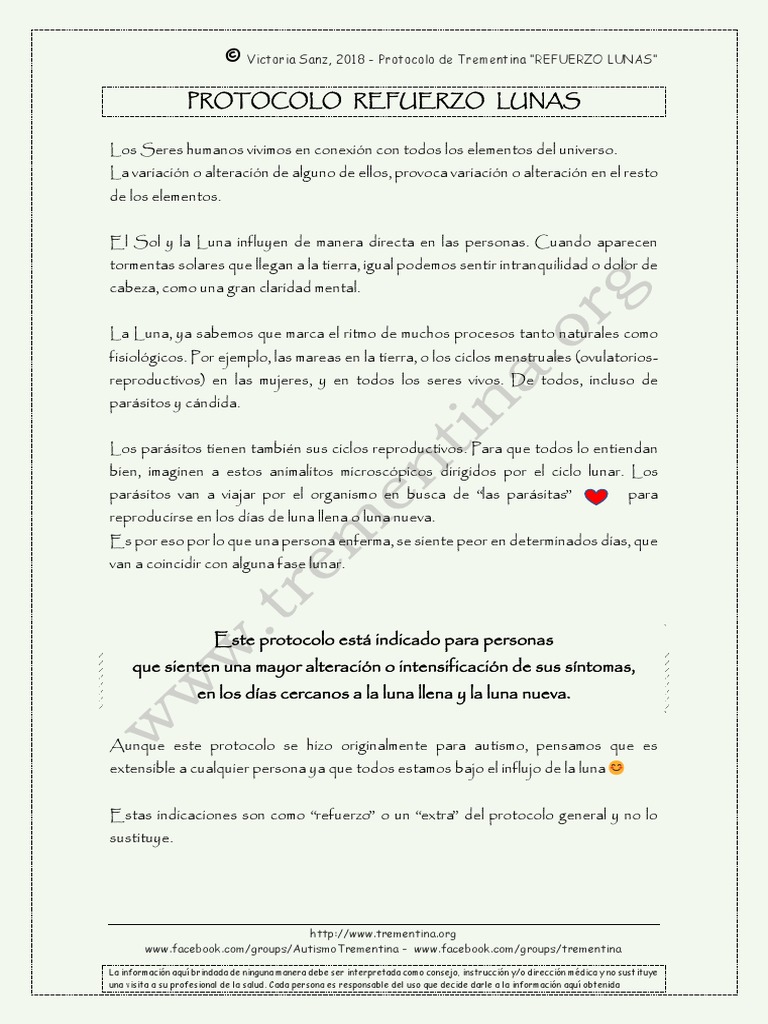 © Victoria Sanz, 2018 - Protocolo de Trementina "REFUERZO LUNAS"
PROTOCOLO REFUERZO LUNAS
Los Seres humanos vivimos en conexión con todos los elementos del universo.
La variación o alteración de alguno de ellos, provoca variación o alteración en el resto
de los elementos.
El Sol y la Luna influyen de manera directa en las personas. Cuando aparecen
tormentas solares que llegan a la tierra, igual podemos sentir intranquilidad o dolor de
cabeza, como una gran claridad mental.
La Luna, ya sabemos que marca el ritmo de muchos procesos tanto naturales como
fisiológicos. Por ejemplo, las mareas en la tierra, o los ciclos menstruales (ovulatorios-
reproductivos) en las mujeres, y en todos los seres vivos. De todos, incluso de
parásitos y cándida.
Los parásitos tienen también sus ciclos reproductivos. Para que todos lo entiendan
bien, imaginen a estos animalitos microscópicos dirigidos por el ciclo lunar. Los
parásitos van a viajar por el organismo en busca de “las parásitas” para
reproducirse en los días de luna llena o luna nueva.
Es por eso por lo que una persona enferma, se siente peor en determinados días, que
van a coincidir con alguna fase lunar.
Este protocolo está indicado para personas
que sienten una mayor alteración o intensificación de sus síntomas,
en los días cercanos a la luna llena y la luna nueva.
Aunque este protocolo se hizo originalmente para autismo, pensamos que es
extensible a cualquier persona ya que todos estamos bajo el influjo de la luna 😊
Estas indicaciones son como “refuerzo” o un “extra” del protocolo general y no lo
sustituye.
www.trementina.org
http://www.trementina.org
www.facebook.com/groups/AutismoTrementina - www.facebook.com/groups/trementina
La información aquí brindada de ninguna manera debe ser interpretada como consejo, instrucción y/o dirección médica y no sustituye
una visita a su profesional de la salud. Cada persona es responsable del uso que decide darle a la información aquí obtenida